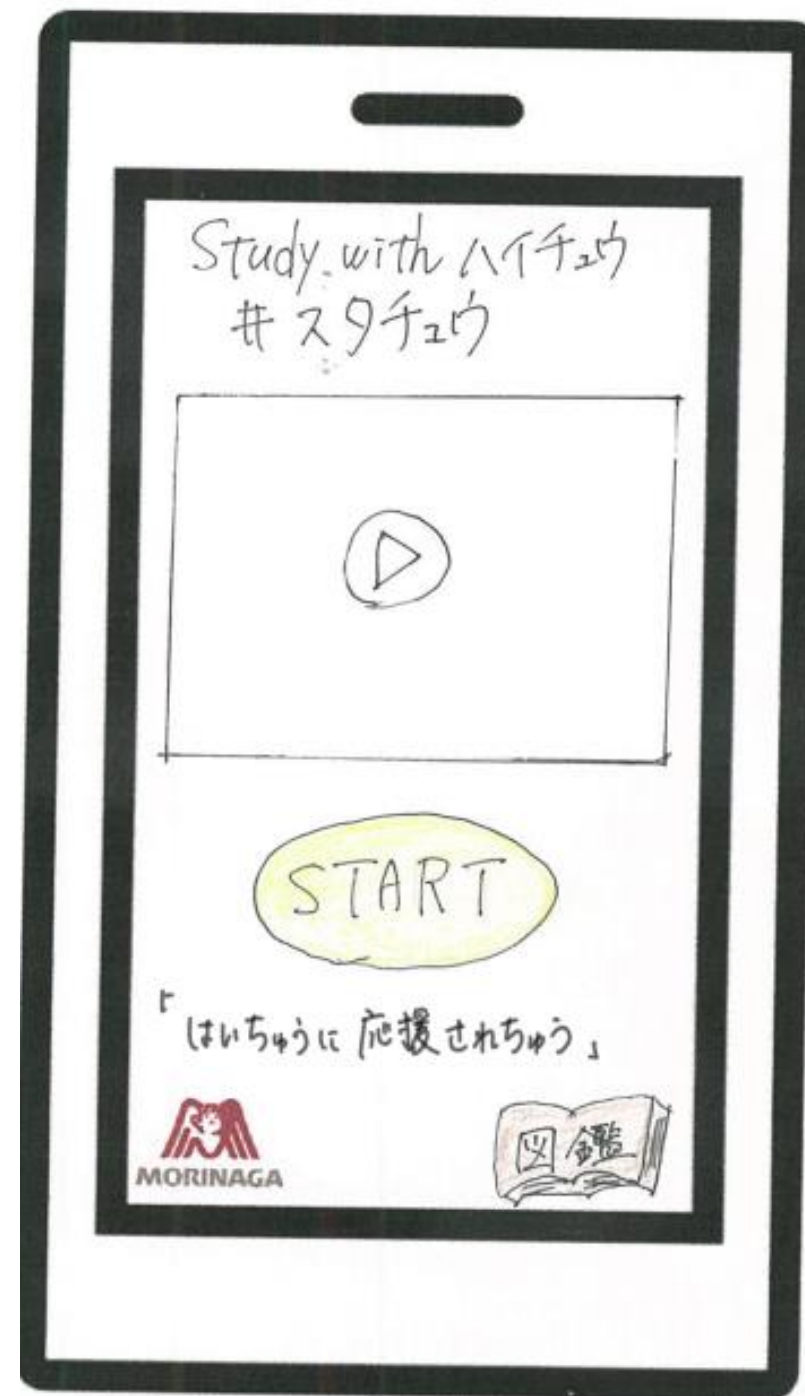 Study with ハイチュウ
# スタチュウ
START
「はいちゅうに 応援されちゅう」
MORINAGA
図鑑